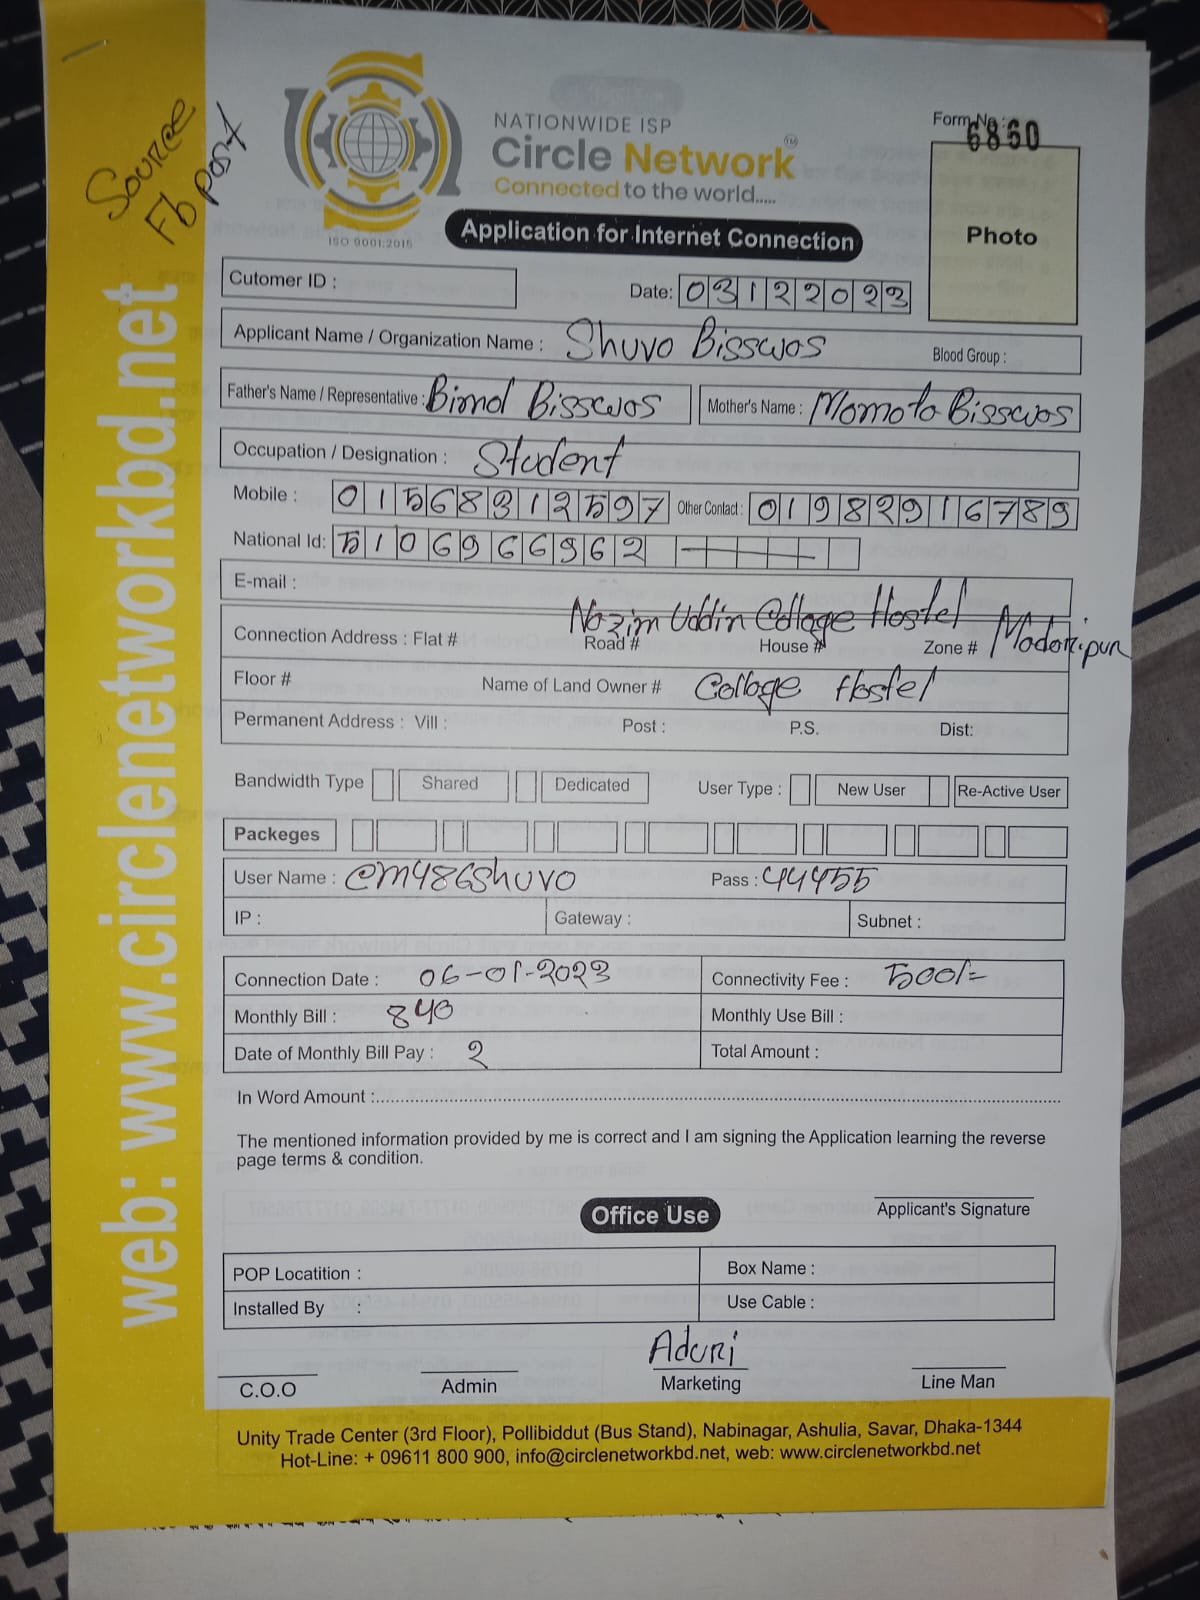 Source
Fb post
NATIONWIDE ISP
Circle Network TM
Connected to the world.....
ISO 9001:2015
Application for Internet Connection
Form No :
6850
Photo
Cutomer ID :
Date: 03122023
Applicant Name / Organization Name : Shuvo Bisswos
Blood Group :
Father's Name / Representative : Bimol Bisswos
Mother's Name : Momota Bisswos
Occupation / Designation : Student
Mobile : 01568312597 Other Contact : 01982916789
National Id: 5106966962
E-mail :
Nozim Uddin Collage Hostel Madaripur
Connection Address : Flat # Road # House # Zone #
Floor # Name of Land Owner # Collage Hostel
Permanent Address : Vill : Post : P.S. Dist:
Bandwidth Type Shared Dedicated User Type : New User Re-Active User
Packeges
User Name : @m486shuvo Pass : 44455
IP : Gateway : Subnet :
Connection Date : 06-01-2023 Connectivity Fee : 500/=
Monthly Bill : 840 Monthly Use Bill :
Date of Monthly Bill Pay : 2 Total Amount :
In Word Amount :
The mentioned information provided by me is correct and I am signing the Application learning the reverse
page terms & condition.
Applicant's Signature
Office Use
POP Locatition : Box Name :
Installed By : Use Cable :
Aduri
C.O.O Admin Marketing Line Man
Unity Trade Center (3rd Floor), Pollibiddut (Bus Stand), Nabinagar, Ashulia, Savar, Dhaka-1344
Hot-Line: + 09611 800 900, info@circlenetworkbd.net, web: www.circlenetworkbd.net
web: www.circlenetworkbd.net